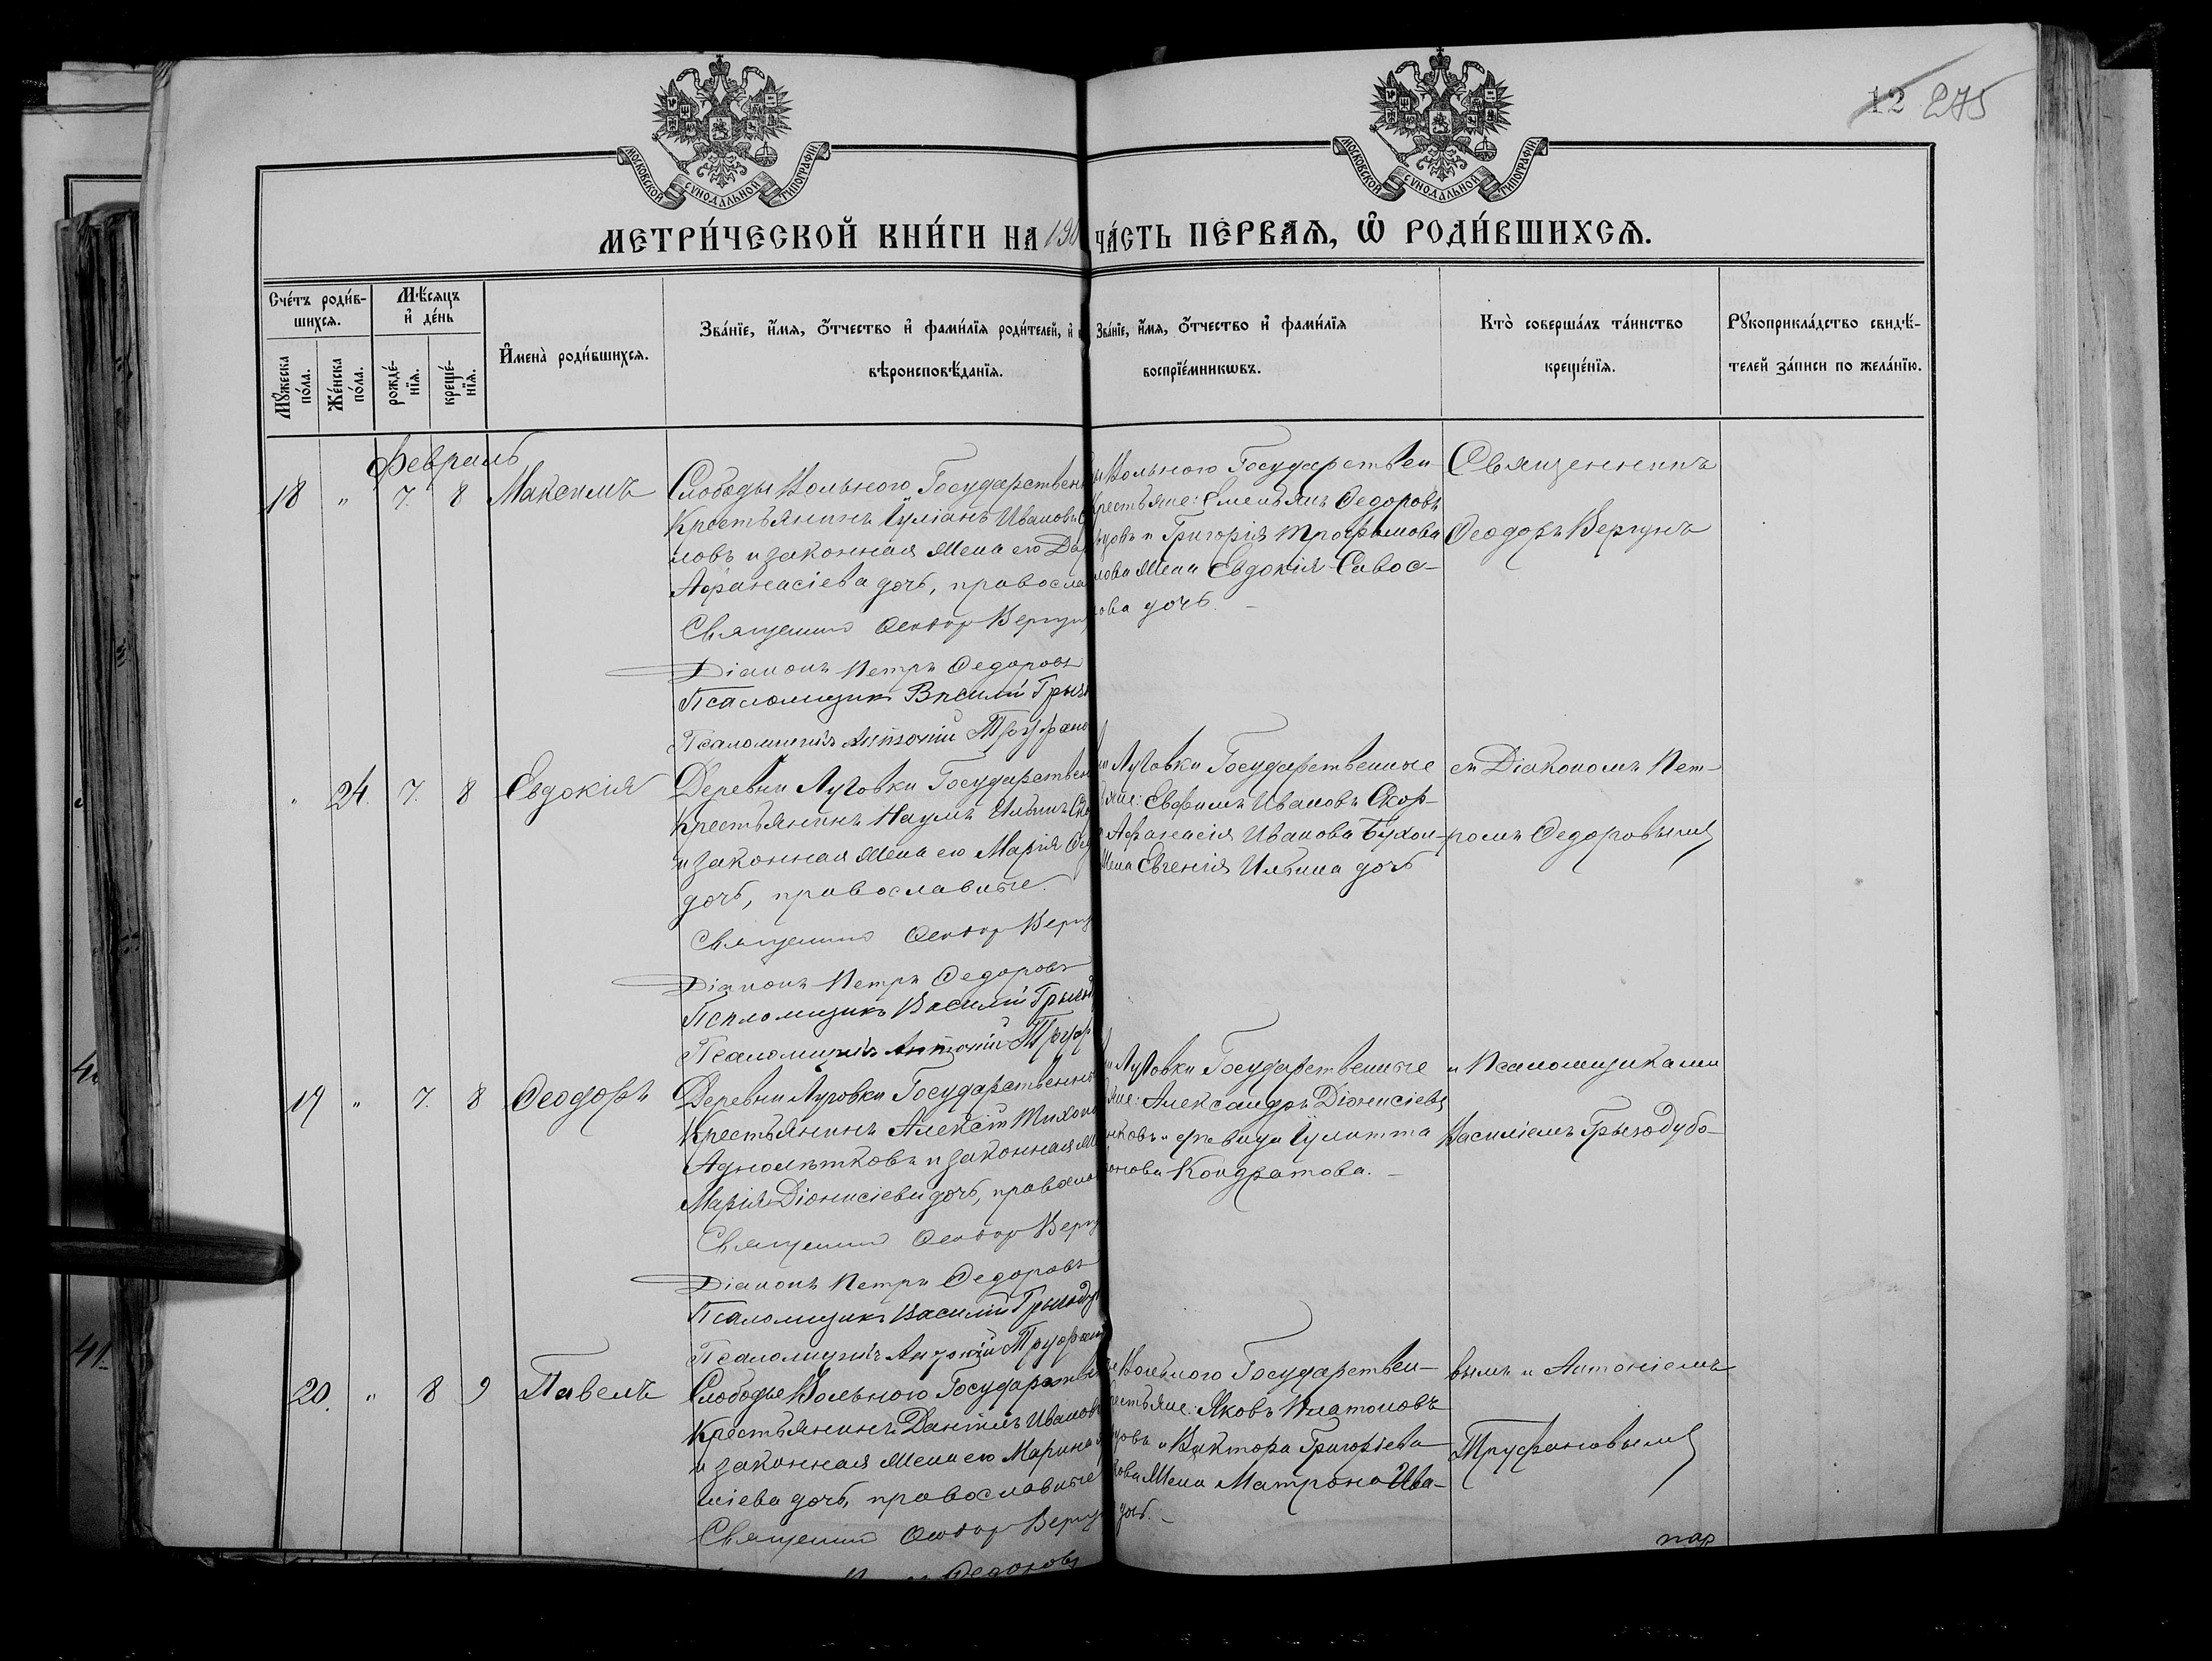 МОСКОВСКОЙ СУНОДАЛЬНОЙ ТИПОГРАФІИ
МОСКОВСКОЙ СУНОДАЛЬНОЙ ТИПОГРАФІИ
12 275
МЕТРИ́ЧЕСКОЙ КНИ́ГИ НА 190
ЧА́СТЬ ПЕ́РВАЯ, Ѡ РОДИ́ВШИХСЯ.
Сче́тъ роди́в-
шихся.
Мꙋжеска по́ла.
Же́нска по́ла.
Мѣ́сяцъ
и҆ де́нь
рожде́-
нїя.
креще́-
нїя.
И҆мена̀ роди́вшихся.
Зва́нїе, и҆́мя, о҆́тчество и҆ фами́лїя роди́телей, и҆
вѣроисповѣ́данїя.
Зва́нїе, и҆́мя, о҆́тчество и҆ фами́лїя
воспрїе́мникѡвъ.
Кто̀ соверша́лъ та́инство
креще́нїя.
Рꙋкоприкла́дство свидѣ́-
телей за́писи по жела́нїю.
Февраль
18 " 7. 8 Максимъ
Слободы Вольного Государствен
Крестьянинъ Іуліанъ Ивановъ
ловъ и законная жена его Дар
Афанасіева дочь, правосла
Священник Феодор Вергун
Діаконъ Петръ Федоровъ
Псаломщик Василій Грызо
Псаломщикъ Антоній Труфано
Вольного Государствен-
крестьяне: Емельянъ Федоровъ
и Григорія Трофимова
жена Евдокія Савос-
ова дочь. –
Священникъ
Феодоръ Вергунъ
" 24. 7. 8 Евдокія
Деревни Луговки Государствен
Крестьянинъ Наумъ Ильинъ
и законная жена его Марія Фед
дочь, православные.
Священник Феодор Вергу
Діаконъ Петръ Федоровъ
Псаломщикъ Василій Грызод
Псаломщикъ Антоній Труф
Луговки Государственные
яне: Евфимъ Ивановъ Скор-
Афанасія Иванова Бухон-
жена Евгенія Ильина дочь
съ Діакономъ Пет-
ромъ Федоровымъ
19 " 7. 8 Феодоръ
Деревни Луговки Государственны
Крестьянинъ Алексій Тихоно
Адноялтковъ и законная ж
Марія Діонисіева дочь, правосла
Священник Феодор Вергу
Діаконъ Петръ Федоровъ
Псаломщикъ Василій Грызоду
Псаломщикъ Антоній Труфан
Луговки Государственные
яне: Александръ Діонисіевъ
нковъ и дѣвица Іулитта
онова Кондратова. –
и Псаломщиками
Василіемъ Грызодубо-
20. " 8 9 Павелъ
Слободы Вольного Государствен
Крестьянинъ Даніилъ Иванов
и законная жена его Марина
сіева дочь, православные
Священник Феодор Вергу
Федоровъ
Вольного Государствен-
рестьяне: Яковъ Платоновъ
и Виктора Григорьева
жена Матрона Ива-
дочь. –
вымъ и Антоніемъ
Труфановымъ